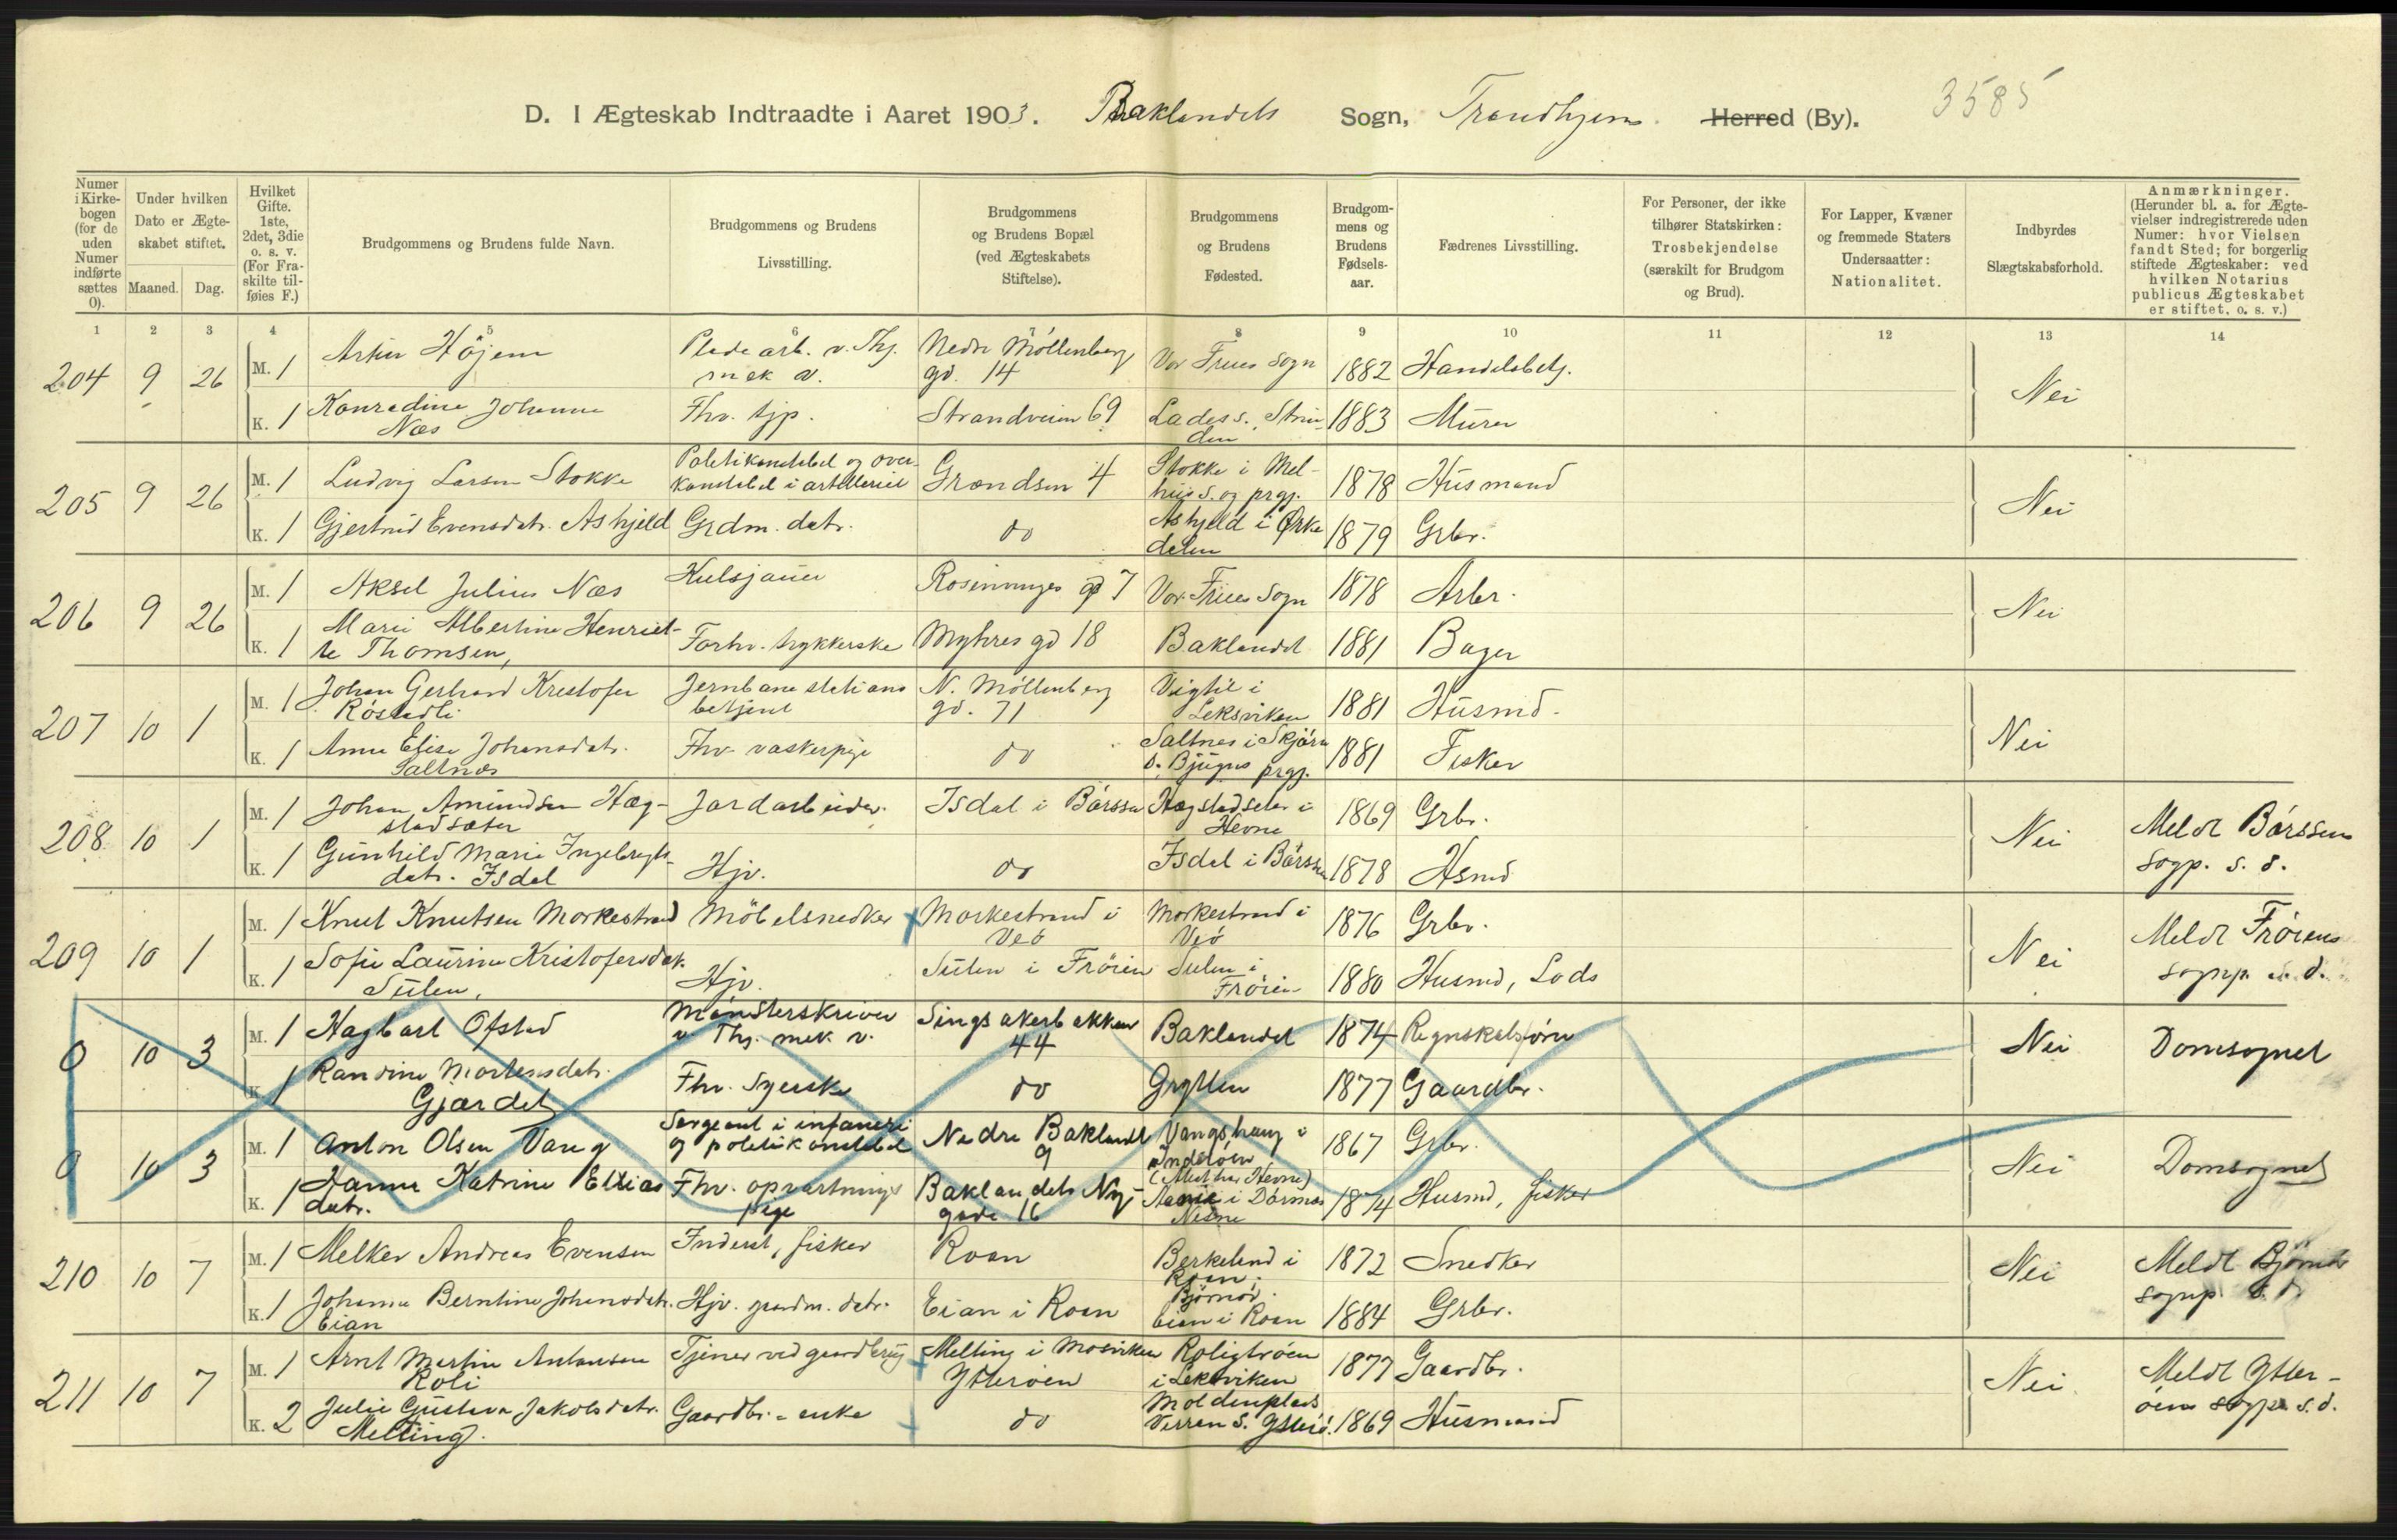 3585
D. I Ægteskab Indtraadte i Aaret 1903. Baklandets Sogn, Trondhjem Herred (By).
Numer i Kirkebogen (for de uden Numer indførte sættes 0).
Under hvilken Dato er Ægteskabet stiftet.
Maaned. Dag.
Hvilket Gifte. 1ste, 2det, 3die o. s. v. (For Fraskilte tilføies F.)
Brudgommens og Brudens fulde Navn.
Brudgommens og Brudens Livsstilling.
Brudgommens og Brudens Bopæl (ved Ægteskabets Stiftelse).
Brudgommens og Brudens Fødested.
Brudgommens og Brudens Fødselsaar.
Fædrenes Livsstilling.
For Personer, der ikke tilhører Statskirken: Trosbekjendelse (særskilt for Brudgom og Brud).
For Lapper, Kvæner og fremmede Staters Undersaatter: Nationalitet.
Indbyrdes Slægtskabsforhold.
Anmærkninger. (Herunder bl. a. for Ægtevielser indregistrerede uden Numer: hvor Vielsen fandt Sted; for borgerlig stiftede Ægteskaber: ved hvilken Notarius publicus Ægteskabet er stiftet, o. s. v.)
1 2 3 4 5 6 7 8 9 10 11 12 13 14
204 9 26 M. 1 Höjem Pladearb. v. Thj. mek v. Nedre Möllenberg gd. 14 Vor Frues Sogn 1882 Handelsbetj. Nei
K. 1 Konradine Johanne Næs Fhv. tjp. Strandveien 69 Lades s. Strinden 1883 Murer
205 9 26 M. 1 Ludvig Larsen Stokke Politikonstabel og overkonstabel i artilleriet Grændsen 4 Stokke i Melhus s. og prgj. 1878 Husmand Nei
K. 1 Gjertrud Evensdatr. Ashjeld Grdm. datr. do Ashjeld i Ørkedalen 1879 Grbr.
206 9 26 M. 1 Aksel Julius Næs Kulsjauer gd 7 Vor Frues Sogn 1878 Arbr. Nei
K. 1 Marie Albertine Henriette Thomsen, Forhv. trykkerske Myhres gd 18 Baklandet 1881 Bager
207 10 1 M. 1 Johan Gerhard Kristofer Röstadli Jernbanestations betjent N. Möllenberg gd. 71 i Leksviken 1881 Husmd. Nei
K. 1 Anne Elise Johansdatr. Saltnes Fhv. vaskerpige do Saltnes i Skjörn s. Bjugns prgj. 1881 Fisker
208 10 1 M. 1 Johan Amundsen Hægstadsæter Jordarbeider. Isdal i Börssen Hægstadseter i Hevne 1869 Grbr. Nei Meldt Börssen sogp. s. d.
K. 1 Gunhild Marie Ingebrigtsdatr. Isdal Hjv. do Isdal i Börssen 1878 Hsmd
209 10 1 M. 1 Knut Knutsen Morkestrand Möbelsnedker Morkestrand i Veö Morkestrand i Veö 1876 Grbr. Nei Meldt Fröiens sognp. s. d.
K. 1 Sofie Laurine Kristofersdatr. Sulen, Hjv. Sulen i Fröien Sulen i Fröien 1880 Husmd, Lods
0 10 3 M. 1 Hagbart Ofstad Mönsterskriver v Thj. mek. v. Singsakerbakken 44 Baklandet 1874 Regnskabsförer Nei Domsognet
K. 1 Randine Mortensdatr. Gjærdet Fhv. Syerske do Grytten 1877 Gaardbr.
0 10 3 M. 1 Anton Olsen Vang Sergeant i infanteri og politikonstabel Nedre Baklandt 9 Vangshaug i Inderöen 1867 Grbr. Nei Domsognet
K. 1 Hanna Katrine Elliasdatr. Fhv. opvartningspige Baklandets Nygade 16 1874 Husmd, fisker
210 10 7 M. 1 Melker Andreas Evensen Inderst, fisker Roan Berkeland i Roan; 1872 Snedker Nei Meldt Björnör sognp. s. d.
K. 1 Johanna Berntine Johansdatr. Eian Hjv. gaardm. datr. Eian i Roan Björnör. Eian i Roan 1884 Grbr.
211 10 7 M. 1 Arnt Martin Antonsen Roli Tjener ved gaardbrug Melting i Mosviken Ytteröen Roligtröen i Leksviken 1877 Gaardbr. Nei Meldt Ytteröens sogp. s. d.
K. 2 Julie Gustava Jakobsdatr. Melting. Gaardbr. enke do Moldenplads Verran s. Ytterö. 1869 Husmand